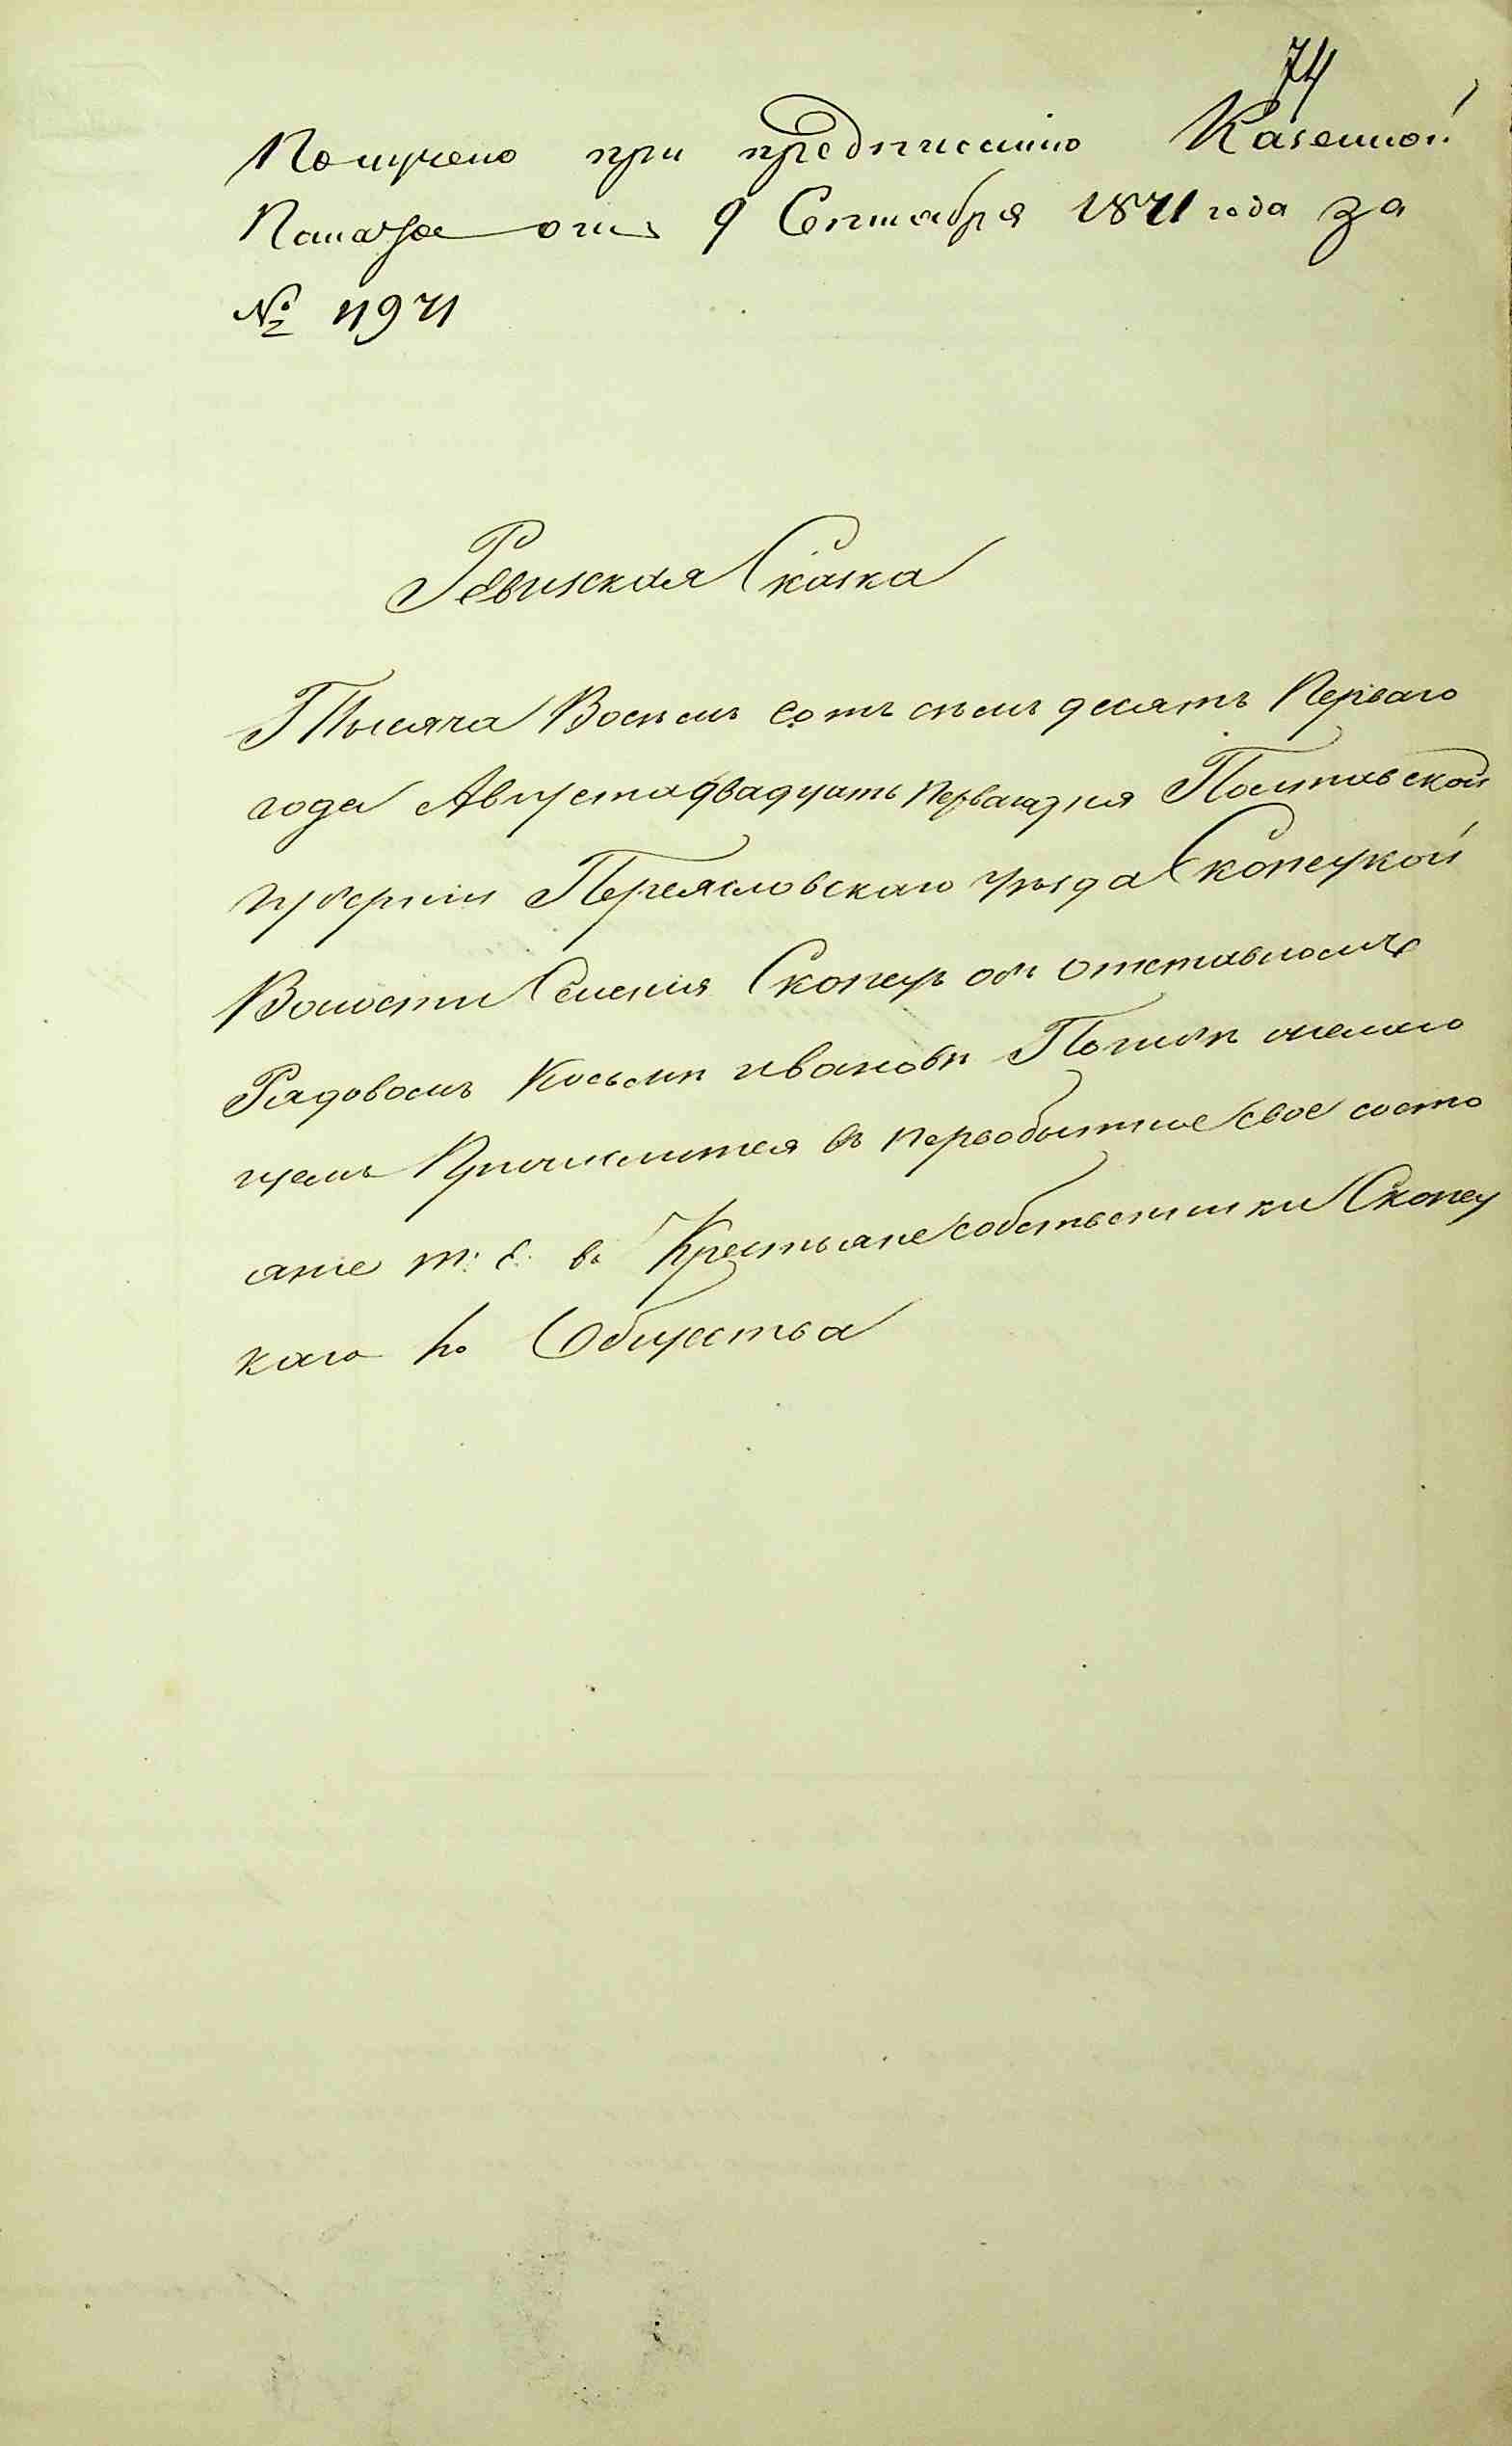 74
Получено при предписанію Казенной
Палаты отъ 9 Сентября 1871 года за
№ 11971
Ревизская Сказка
Тысяча Восемь сотъ семъ десятъ Перваго
года Августа двадцать перваго дня Полтавской
губерніи Переясловскаго уѣзда Скопецкой
Волости Селенія Скопцъ объ отставномъ
Рядовомъ Косьмѣ Ивановѣ желаю
щемъ Причислится въ первобытное свое состо
яніе т: е: въ Крестьяне собственники Скопец
каго Общества